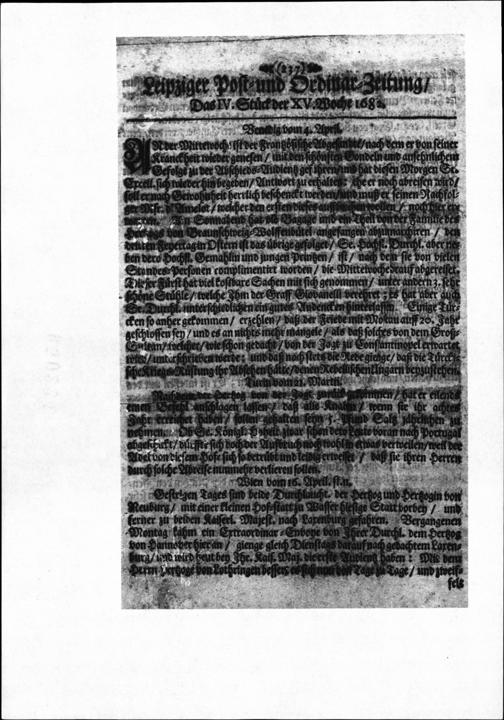 (237)
Leipziger Post- und Ordinar-Zeitung/
Das IV. Stück der XV. Woche 1682.
Venedig vom 4. April.
AN der Mittewoch ist der Frantzösische Abgesandte/ nach dem er von seiner
Kranckheit wieder genesen/ mit den schönsten Gondeln und ansehnlichem
Gefolgt zu der Abschieds-Audientz gefahren/ und hat diesen Morgen Sr.
Excell. sich wieder hin begeben/ Antwort zu erhalten: ehe er noch abreisen wird/
soll er nach Gewohnheit herrlich beschenckt werden/ und muß er seinen Nachfol-
ger Mr. d' Amelot/ welcher zu ersten dieses ankommen wollen/ noch hier
Am Sonnabend hat die Bagage und ein Theil von der Familie des
Hertzogs von Braunschweig-Wolfenbüttel angefangen abzumarchiren/ den
dritten Feyertag in Ostern ist das übrige gefolget/ Sr. Hochfl. Durchl. aber ne-
ben dero Hochfl. Gemahlin und jungen Printzen/ ist/ nach dem sie von vielen
Standes-Personen complimentirt worden/ die Mittewoche drauf abgereiset.
Dieser Fürst hat viel kostbare Sachen mit sich genommen/ unter andern 3. sehr
schöne Stühle/ welche Ihm der Graff Giovanelli verehret; es hat aber auch
Sr. Durchl. unterschiedlichen ein gutes Andencken hinterlassen. Einige Tür-
cken so anher gekommen/ erzehlen/ daß der Friede mit Moscau auff 20. Jahr
geschlossen sey/ und es an nichts mehr mangele/ als daß solches von dem Groß-
Sultan/ welcher/ wie schon gedacht/ von der Jagt zu Constantinopel erwartet
wird/ unterschrieben werde; und daß noch stets die Rede gienge/ daß die Türcki-
sche Kriegs-Rüstung ihr Absehen hätte/ denen Rebellischen Ungarn beyzustehen.
Turin vom 21. Martii.
Nachdem der Hertzog von der Jagt zurück gekommen/ hat er eilends
einen Befehl anschlagen lassen/ daß alle Knaben/ wenn sie ihr achtes
Jahr erreichet haben/ sollen gehalten seyn 5. Pfund Saltz jährlichen zu
nehmen. Die Se. Königl. Hoheit zwar schon dero Leute voran nach Portugal
abgeschickt/ dürffte sich doch der Auffbruch noch wohl in etwas verweilen/ weil der
Adel von diesem Hofe sich so betrübt und leidig erweiset/ daß sie ihren Herren
durch solche Abreise nunmehr verlieren sollen.
Wien vom 16. April. st. n.
Gestrigen Tages sind beide Durchlaucht. der Hertzog und Hertzogin von
Neuburg/ mit einer kleinen Hofstatt zu Wasser hiesige Statt vorbey/ und
ferner zu beiden Käiserl. Majest. nach Laxenburg gefahren. Vergangenen
Montag kahm ein Extraordinar-Envoye von Ihrer Durchl. dem Hertzog
von Hannover hier an/ gienge gleich Dienstags darauf nach gedachtem Laxen-
burg/ und wird heut bey Ihr. Käis. Maj. die erste Audientz haben: Mit dem
Herrn Hertzoge von Lothringen bessert es sich nun von Tage zu Tage/ und zweif-
fels